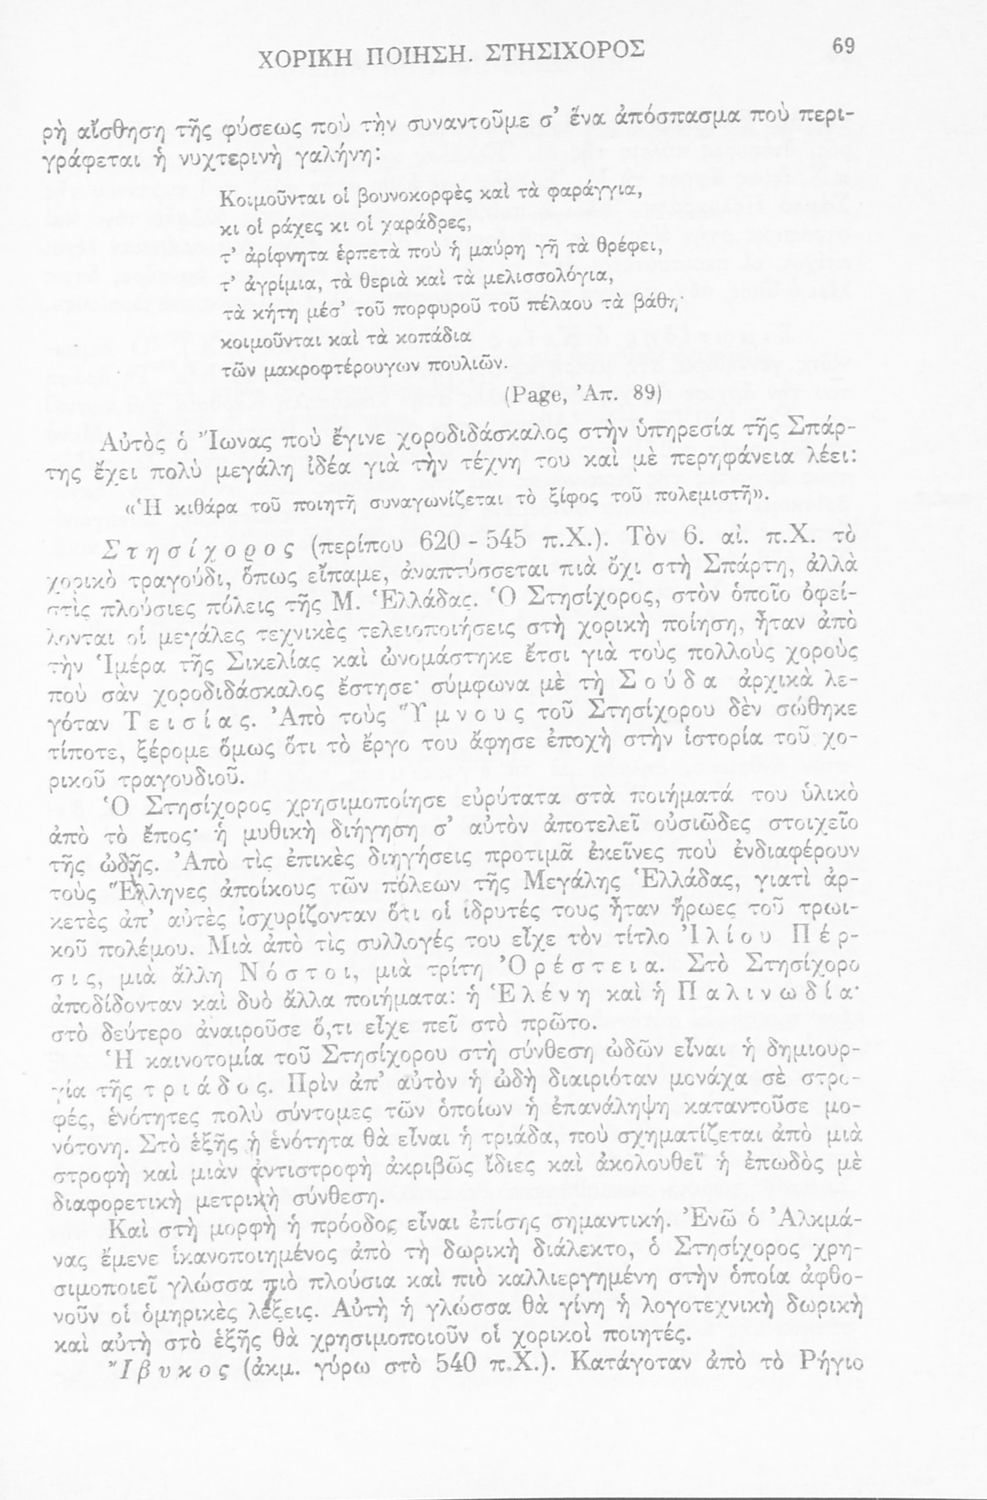 ΧΟΡΙΚΗ ΠΟΙΗΣΗ. ΣΤΗΣΙΧΟΡΟΣ 69
ρὴ αἴσθηση τῆς φύσεως ποὺ τὴν συναντοῦμε σ’ ἕνα ἀπόσπασμα ποὺ περι-
γράφεται ἡ νυχτερινὴ γαλήνη:
Κοιμοῦνται οἱ βουνοκορφὲς καὶ τὰ φαράγγια,
κι οἱ ράχες κι οἱ χαράδρες,
τ’ ἀρίφνητα ἑρπετὰ ποὺ ἡ μαύρη γῆ τὰ θρέφει,
τ’ ἀγρίμια, τὰ θεριὰ καὶ τὰ μελισσολόγια,
τὰ κήτη μέσ’ τοῦ πορφυροῦ τοῦ πέλαου τὰ βάθη·
κοιμοῦνται καὶ τὰ κοπάδια
τῶν μακροφτέρουγων πουλιῶν.
(Page, Ἀπ. 89)
Αὐτὸς ὁ Ἴωνας ποὺ ἔγινε χοροδιδάσκαλος στὴν ὑπηρεσία τῆς Σπάρ-
της ἔχει πολὺ μεγάλη ἰδέα γιὰ τὴν τέχνη του καὶ μὲ περηφάνεια λέει:
«Ἡ κιθάρα τοῦ ποιητῆ συναγωνίζεται τὸ ξίφος τοῦ πολεμιστῆ».
Στησίχορος (περίπου 620 - 545 π.Χ.). Τὸν 6. αἰ. π.Χ. τὸ
χορικὸ τραγούδι, ὅπως εἴπαμε, ἀναπτύσσεται πιὰ ὄχι στὴ Σπάρτη, ἀλλὰ
στὶς πλούσιες πόλεις τῆς Μ. Ἑλλάδας. Ὁ Στησίχορος, στὸν ὁποῖο ὀφεί-
λονται οἱ μεγάλες τεχνικὲς τελειοποιήσεις στὴ χορικὴ ποίηση, ἦταν ἀπὸ
τὴν Ἱμέρα τῆς Σικελίας καὶ ὠνομάστηκε ἔτσι γιὰ τοὺς πολλοὺς χοροὺς
ποὺ σὰν χοροδιδάσκαλος ἔστησε· σύμφωνα μὲ τὴ Σούδα ἀρχικὰ λε-
γόταν Τεισίας. Ἀπὸ τοὺς Ὕμνους τοῦ Στησίχορου δὲν σώθηκε
τίποτε, ξέρομε ὅμως ὅτι τὸ ἔργο του ἄφησε ἐποχὴ στὴν ἱστορία τοῦ χο-
ρικοῦ τραγουδιοῦ.
Ὁ Στησίχορος χρησιμοποίησε εὐρύτατα στὰ ποιήματά του ὑλικὸ
ἀπὸ τὸ ἔπος· ἡ μυθικὴ διήγηση σ’ αὐτὸν ἀποτελεῖ οὐσιῶδες στοιχεῖο
τῆς ὠδῆς. Ἀπὸ τὶς ἐπικὲς διηγήσεις προτιμᾶ ἐκεῖνες ποὺ ἐνδιαφέρουν
τοὺς Ἕλληνες ἀποίκους τῶν πόλεων τῆς Μεγάλης Ἑλλάδας, γιατὶ ἀρ-
κετὲς ἀπ’ αὐτὲς ἰσχυρίζονταν ὅτι οἱ ἱδρυτές τους ἦταν ἥρωες τοῦ τρωι-
κοῦ πολέμου. Μιὰ ἀπὸ τὶς συλλογές του εἶχε τὸν τίτλο Ἰλίου Πέρ-
σις, μιὰ ἄλλη Νόστοι, μιὰ τρίτη Ὀρέστεια. Στὸ Στησίχορο
ἀποδίδονταν καὶ δυὸ ἄλλα ποιήματα: ἡ Ἑλένη καὶ ἡ Παλινωδία·
στὸ δεύτερο ἀναιροῦσε ὅ,τι εἶχε πεῖ στὸ πρῶτο.
Ἡ καινοτομία τοῦ Στησίχορου στὴ σύνθεση ὠδῶν εἶναι ἡ δημιουρ-
γία τῆς τριάδος. Πρὶν ἀπ’ αὐτὸν ἡ ὠδὴ διαιριόταν μονάχα σὲ στρο-
φές, ἑνότητες πολὺ σύντομες τῶν ὁποίων ἡ ἐπανάληψη καταντοῦσε μο-
νότονη. Στὸ ἑξῆς ἡ ἑνότητα θὰ εἶναι ἡ τριάδα, ποὺ σχηματίζεται ἀπὸ μιὰ
στροφὴ καὶ μιὰν ἀντιστροφὴ ἀκριβῶς ἴδιες καὶ ἀκολουθεῖ ἡ ἐπωδὸς μὲ
διαφορετικὴ μετρικὴ σύνθεση.
Καὶ στὴ μορφὴ ἡ πρόοδος εἶναι ἐπίσης σημαντική. Ἐνῶ ὁ Ἀλκμά-
νας ἔμενε ἱκανοποιημένος ἀπὸ τὴ δωρικὴ διάλεκτο, ὁ Στησίχορος χρη-
σιμοποιεῖ γλώσσα πιὸ πλούσια καὶ πιὸ καλλιεργημένη στὴν ὁποία ἀφθο-
νοῦν οἱ ὁμηρικὲς λέξεις. Αὐτὴ ἡ γλώσσα θὰ γίνη ἡ λογοτεχνικὴ δωρικὴ
καὶ αὐτὴ στὸ ἑξῆς θὰ χρησιμοποιοῦν οἱ χορικοὶ ποιητές.
Ἴβυκος (ἀκμ. γύρω στὸ 540 π.Χ.). Κατάγοταν ἀπὸ τὸ Ρήγιο